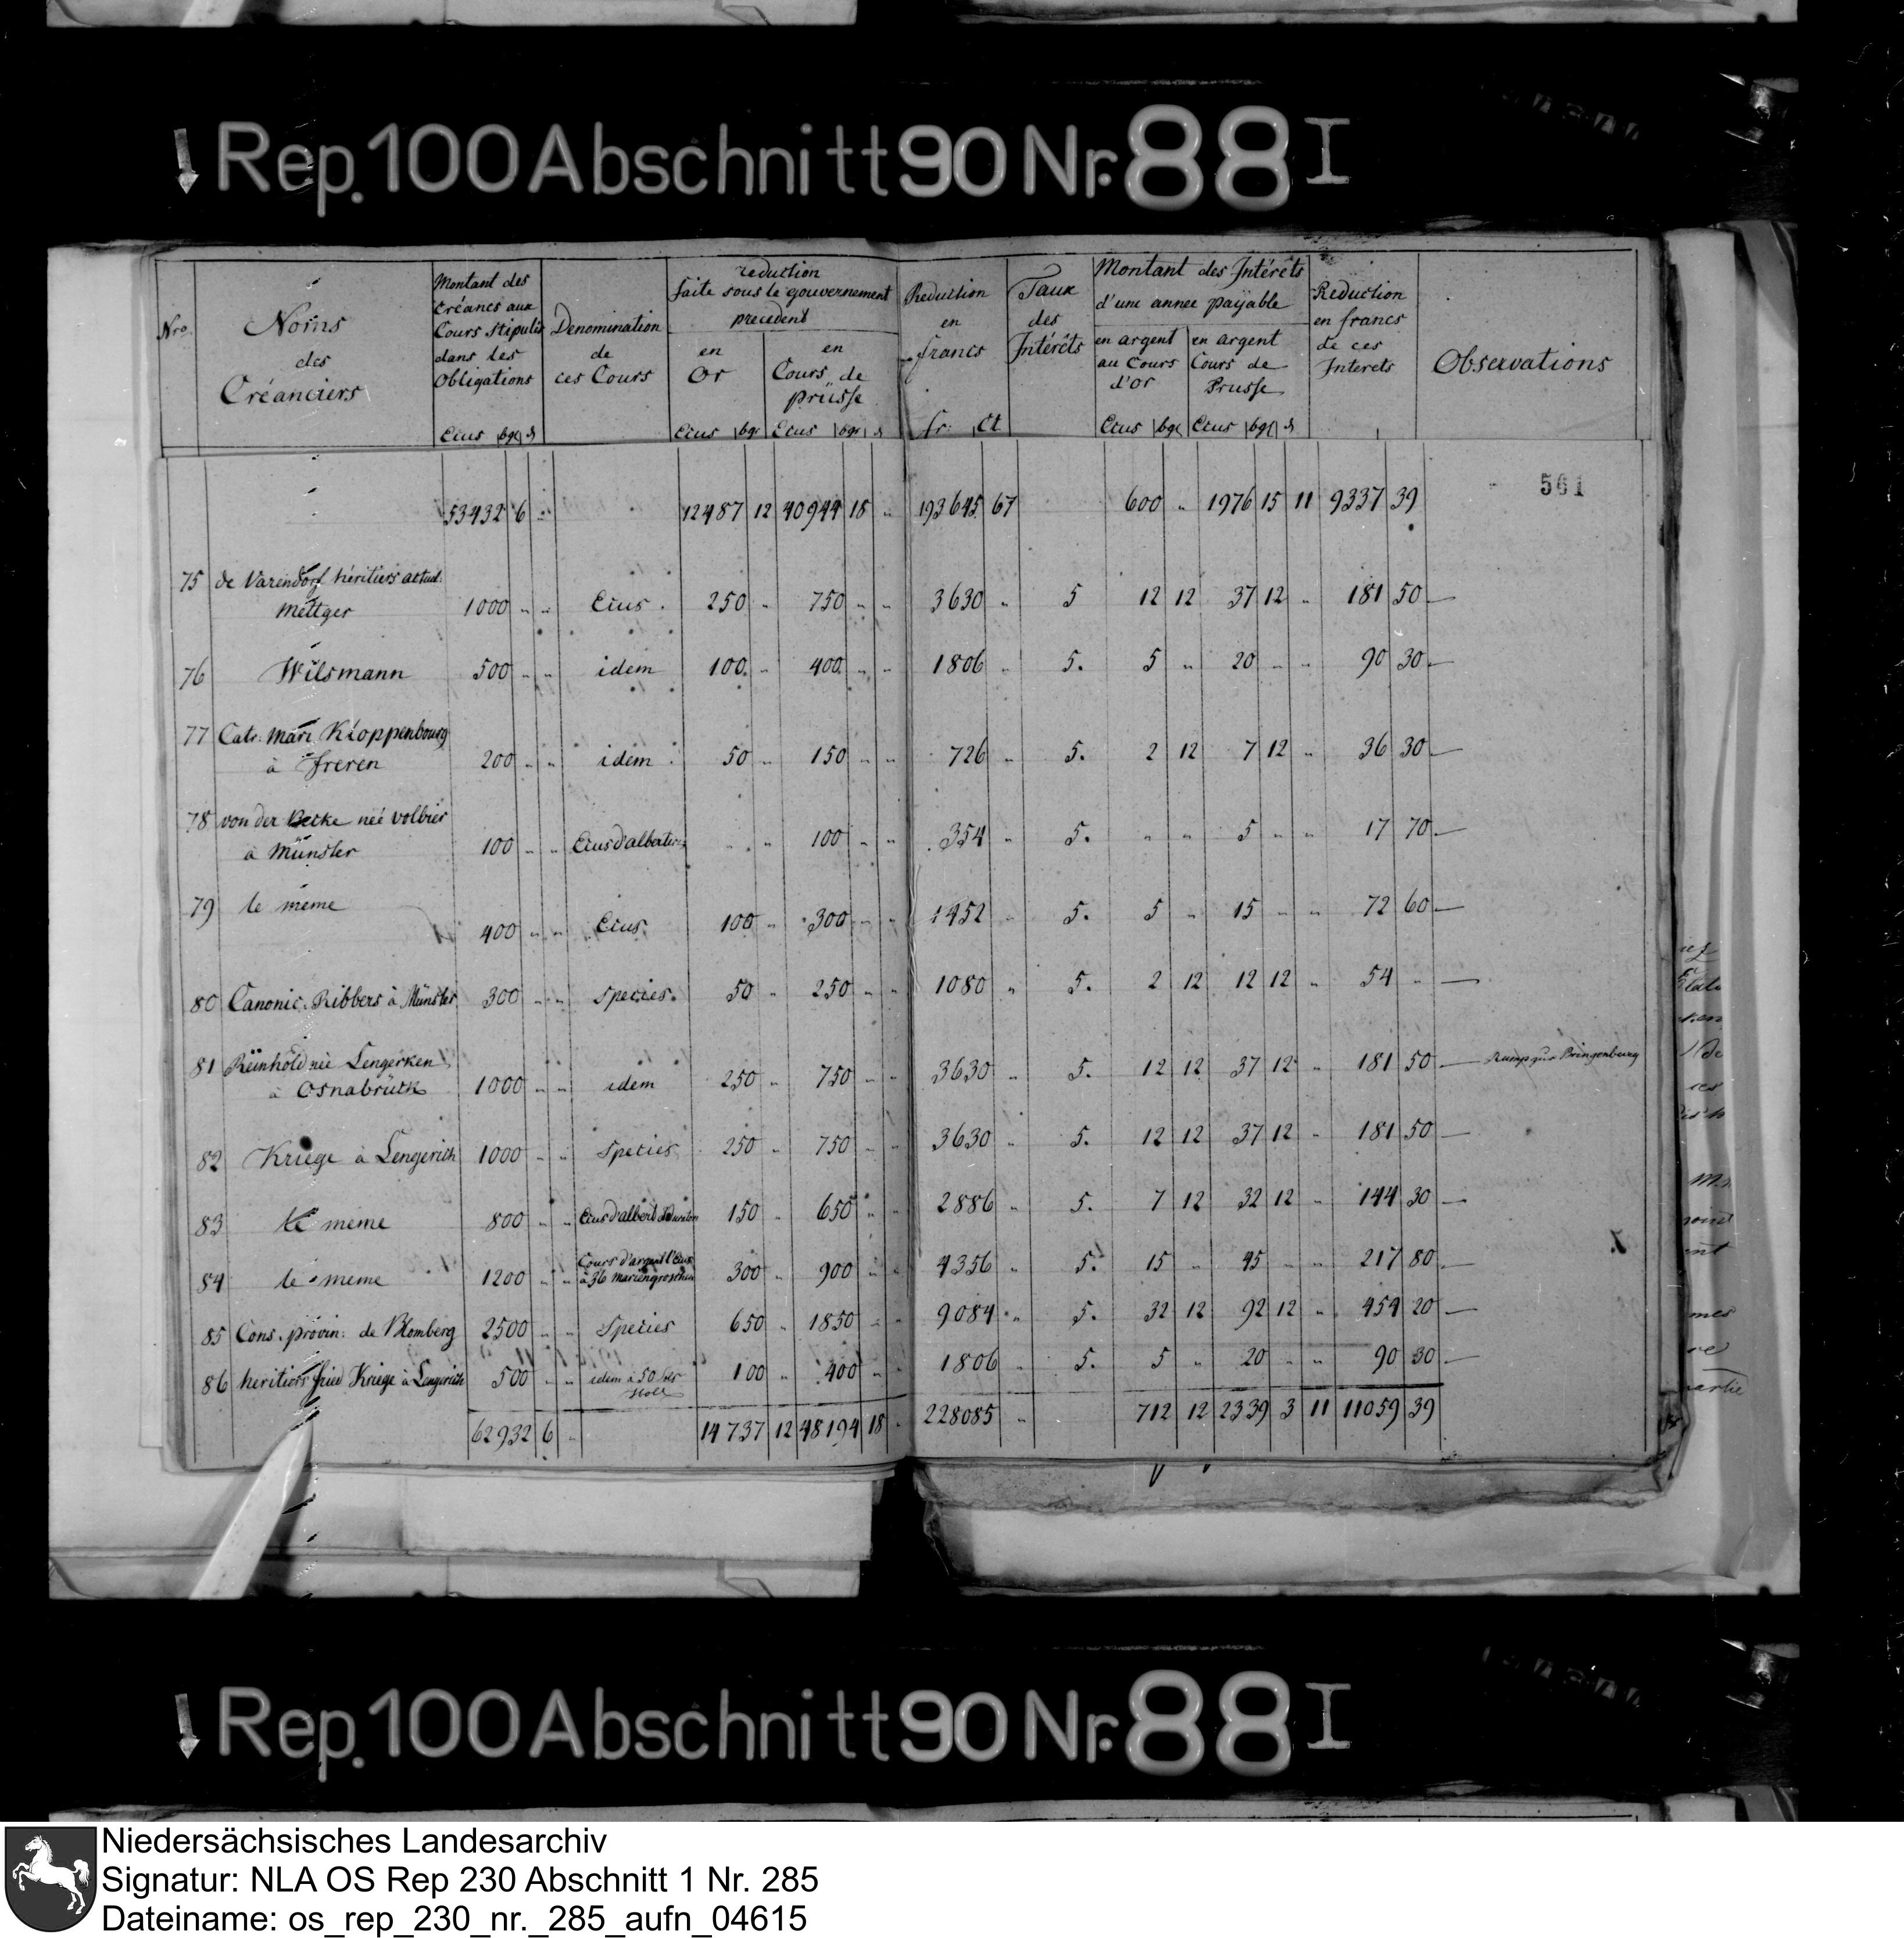 Rep. 100 Abschnitt 90 Nr. 88 I
Nro. | Noms des Créanciers | Montant des Créances aux Cours stipulés dans les Obligations Ecus bgr d | Denomination de ces Cours | reduction faite sous le gouvernement precedent en Or Ecus bgr | en Cours de prüsse Ecus bgr d | Reduction en francs fr. Ct | Taux des Intérêts | Montant des Intérêts d'une annee payable en argent au Cours d'or Ecus bgr | en argent Cours de Prusse Ecus bgr d | Reduction en francs de ces Interets | Observations
561
53432 6 .. | 12487 12 | 40944 18 .. | 193645 67 | 600 .. | 1976 15 11 | 9337 39
75 de Varendorf héritiers actuel.
Mettger 1000 .. .. Ecus. 250 .. 750 .. .. 3630 .. 5 12 12 37 12 .. 181 50 —
76 Wilsmann 500 .. .. idem 100 .. 400 .. .. 1806 .. 5. 5 .. 20 .. .. 90 30 —
77 Catr. Mari Kloppenbourg
à freren 200 .. .. idem 50 .. 150 .. .. 726 .. 5. 2 12 7 12 .. 36 30 —
78 von der Becke neé Volbier
à Münster 100 .. .. Ecus d'albertus .. .. 100 .. .. 354 .. 5. .. .. 5 .. .. 17 70 —
79 le meme 400 .. .. Ecus. 100 .. 300 .. .. 1452 .. 5. 5 .. 15 .. .. 72 60 —
80 Canonic. Ribbers à Münster 300 .. .. Species. 50 .. 250 .. .. 1080 .. 5. 2 12 12 12 .. 54 .. —
81 Reinhold neè Lengerken
à Osnabrück 1000 .. .. idem 250 .. 750 .. .. 3630 .. 5. 12 12 37 12 .. 181 50 —
82 Kriege à Lengerich 1000 .. .. Species 250 .. 750 .. .. 3630 .. 5. 12 12 37 12 .. 181 50 —
83 le meme 800 .. .. Ecus d'albert 150 .. 650 .. .. 2886 .. 5. 7 12 32 12 .. 144 30 —
84 le meme 1200 .. .. Cours d'argent l'Ecus
à 36 mariengroschen 300 .. 900 .. .. 4356 .. 5. 15 .. 45 .. .. 217 80 —
85 Cons. provin. de Blomberg 2500 .. .. Species 650 .. 1850 .. .. 9084 .. 5. 32 12 92 12 .. 454 20 —
86 heritiers fried Kriege à Lengerich 500 .. .. idem à 50 100 .. 400 .. .. 1806 .. 5. 5 .. 20 .. .. 90 30 —
62932 6 .. | 14737 12 | 48194 18 .. | 228085 .. | 712 12 | 2339 3 11 | 11059 39
Rep. 100 Abschnitt 90 Nr. 88 I
Niedersächsisches Landesarchiv
Signatur: NLA OS Rep 230 Abschnitt 1 Nr. 285
Dateiname: os_rep_230_nr._285_aufn_04615